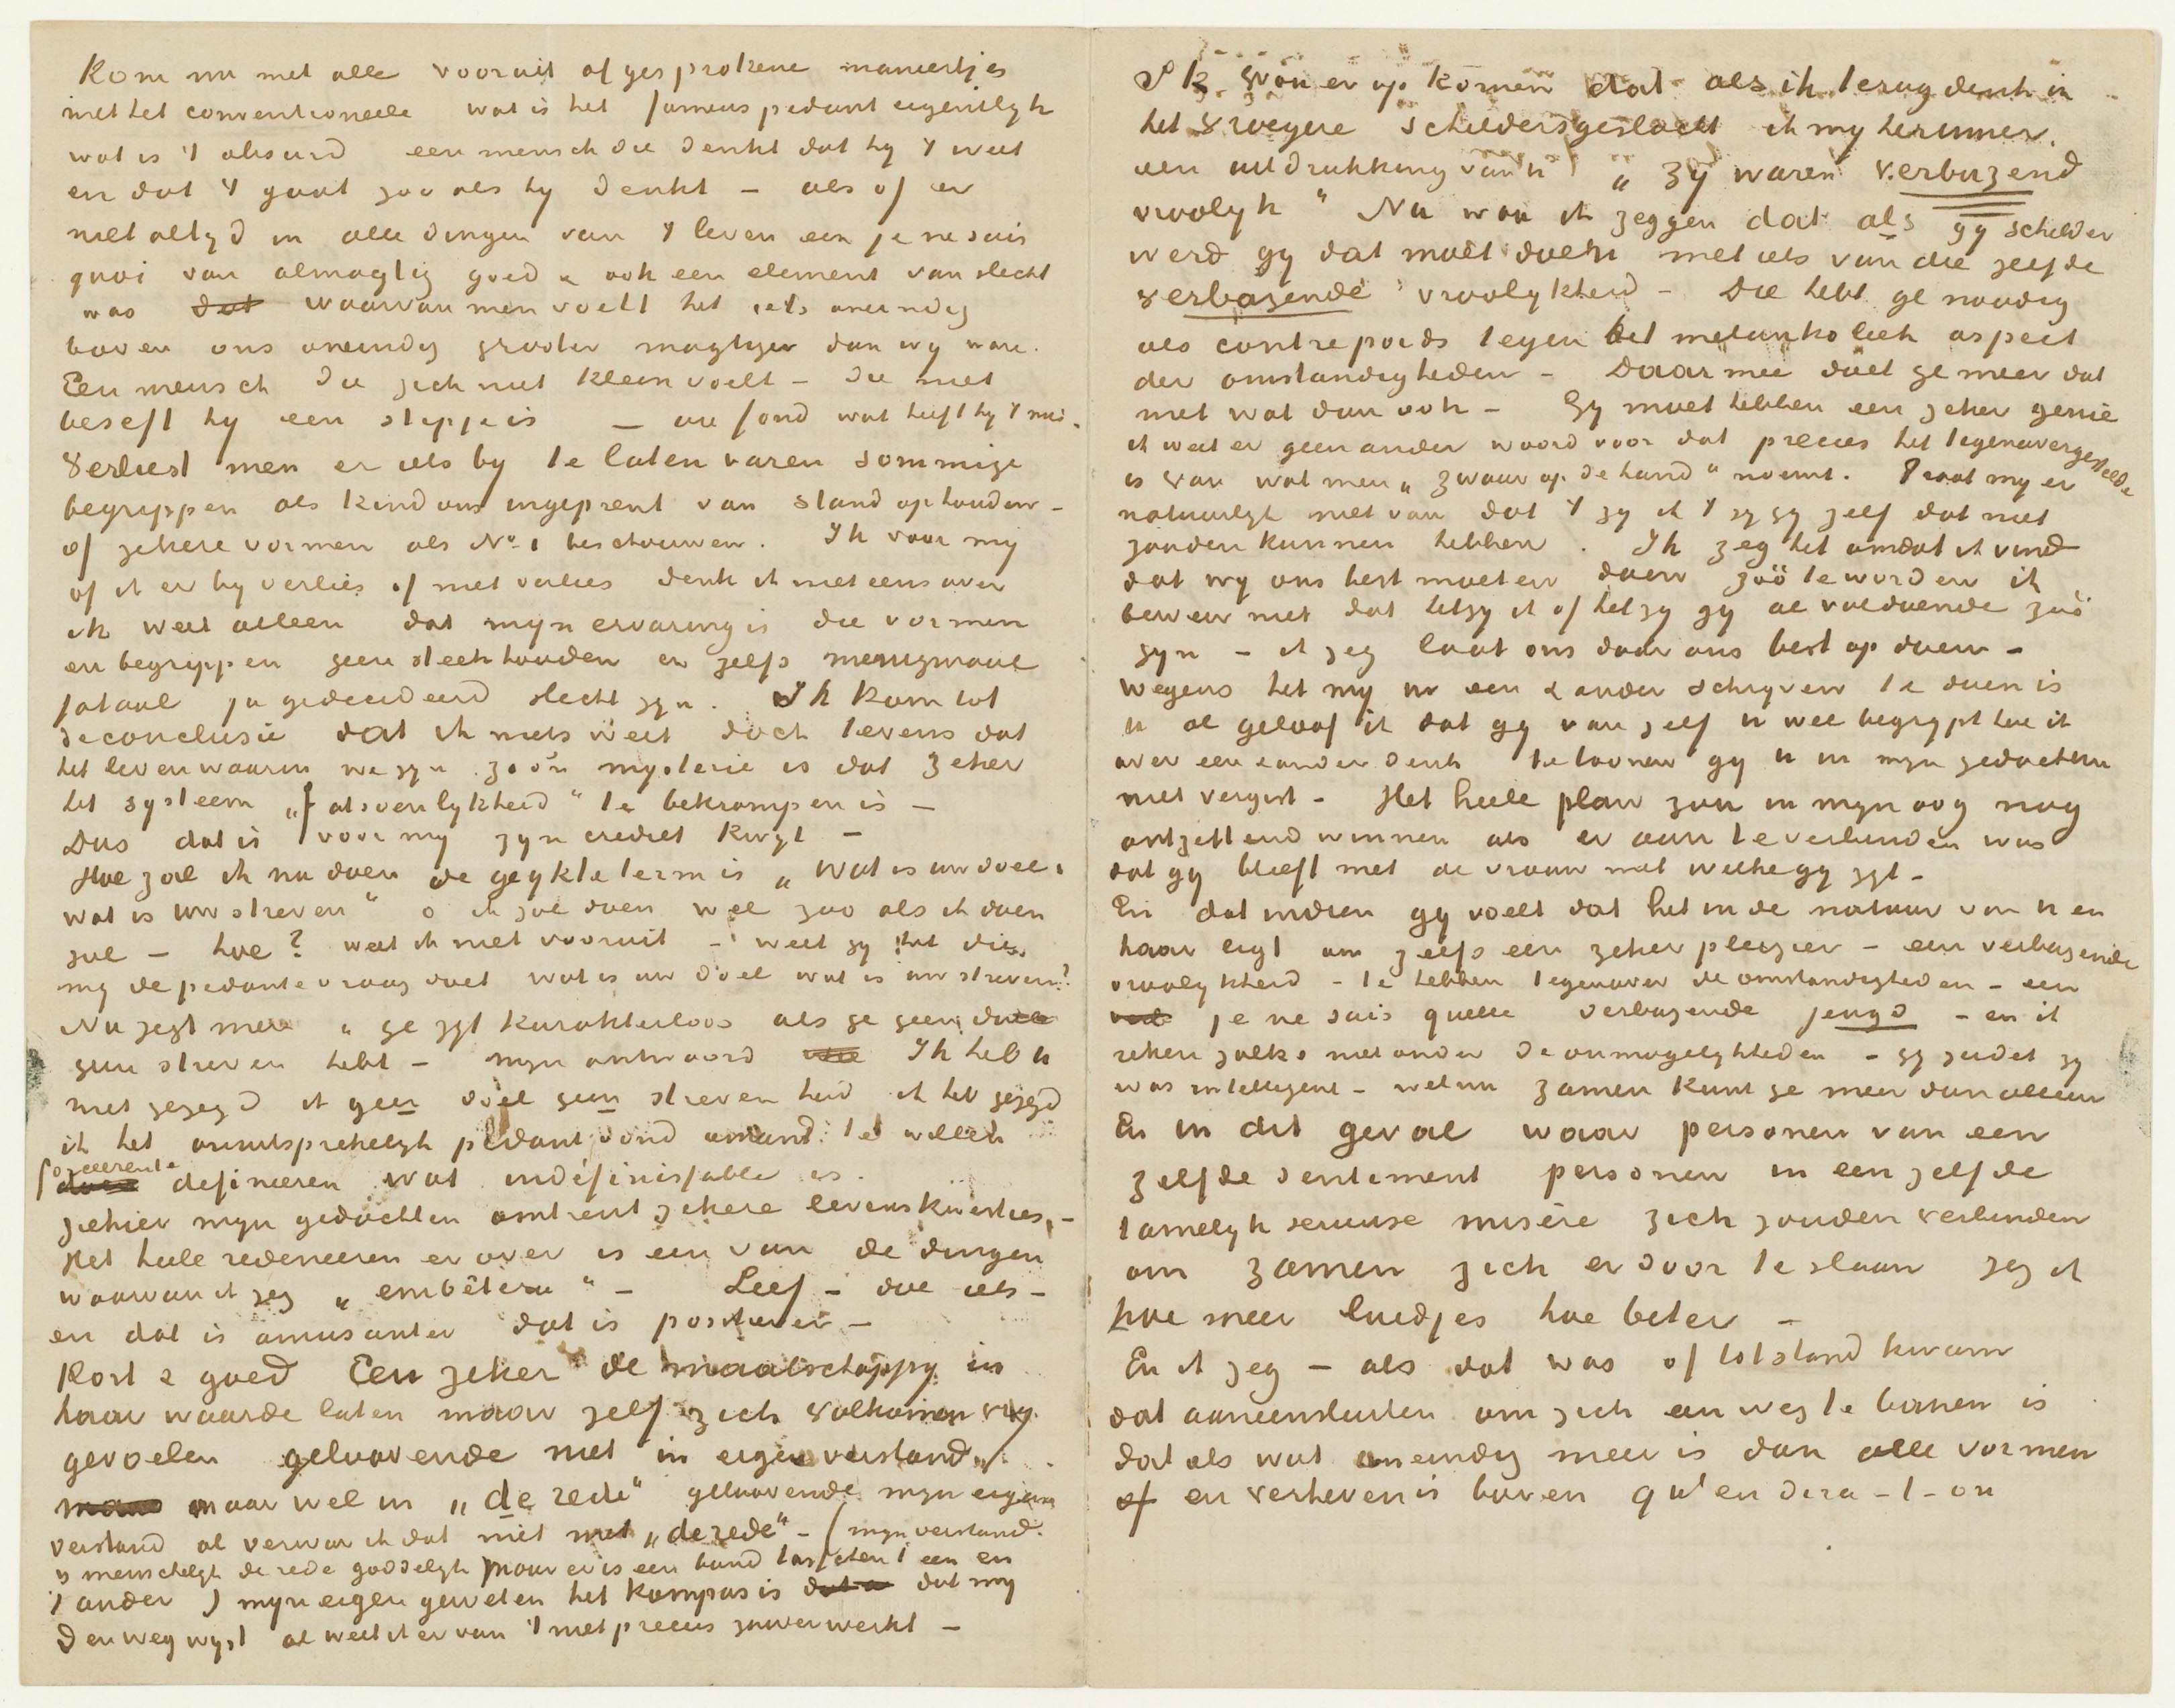 Kom nu met alle vooruit afgesprokene maniertjes
met het conventioneele wat is het fameus pedant eigentlyk
wat is 't absurd een mensch die denkt dat hy 't weet
en dat 't gaat zoo als hy denkt – als of er
niet altyd in alle dingen van 't leven een je ne sais
quoi van almagtig goed & ook een element van slecht
was dat waarvan men voelt het iets oneindig
boven ons oneindig grooter magtiger dan wy ware.
Een mensch die zich niet klein voelt – die niet
beseft hy een stipje is – au fond wat heeft hy 't mis.
Verliest men er iets by te laten varen sommige
begrippen als kind ons ingeprent van stand ophouden –
of zekere vormen als No. 1 beschouwen. Ik voor my
of ik er by verlies of niet verlies denk ik niet eens over
ik weet alleen dat myn ervaring is die vormen
en begrippen geen steek houden en zelfs menigmaal
fataal ja gedecideerd slecht zyn. Ik kom tot
de conclusie dat ik niets weet doch tevens dat
het leven waarin we zyn zoo'n mysterie is dat zeker
het systeem „fatsoenlykheid" te bekrompen is –
Dus dat is voor my zyn crediet kwyt –
Hoe zal ik nu doen de geykte term is „Wat is uw doel,
wat is uw streven" o ik zal doen wel zoo als ik doen
zal – hoe? weet ik niet vooruit – weet gy het die
my de pedante vraag doet wat is uw doel wat is uw streven?
Nu zegt men „ge zyt karakterloos als ge geen doel
geen streven hebt – myn antwoord Ik heb u
niet gezegd ik geen doel geen streven heb ik heb gezegd
ik het onuitsprekelyk pedant vond iemand te willen
forceeren te
definieeren wat indéfinissable is.
ziehier myn gedachten omtrent zekere levenskwesties. –
Het heele redeneeren er over is een van de dingen
waarvan ik zeg „embêtera" – Leef – doe iets –
en dat is amusanter dat is positiever –
Kort & goed Een zeker de maatschappy in
haar waarde laten maar zelf zich volkomen vry
gevoelen geloovende niet in eigen verstand
maar maar wel in „de rede" geloovende myn eigen
verstand al verwar ik dat niet met „de rede" – (myn verstand
is menschelyk de rede goddelyk maar er is een band tusschen 't een en
't ander) myn eigen geweten het kompas is dat my
den weg wyst al weet ik er van 't niet precies zuiver werkt –
Ik wou er op komen dat als ik terug denk in
het vroegere schildersgeslacht ik my herinner
een uitdrukking van u „zy waren verbazend
vroolyk" Nu wou ik zeggen dat als gy schilder
werd gy dat moet doen met iets van die zelfde
verbazende vroolykheid – Die hebt ge noodig
als contrepoids tegen het melankoliek aspect
der omstandigheden – Daarmee doet ge meer dat
met wat dan ook – Gy moet hebben een zeker genie
ik weet er geen ander woord voor dat precies het tegenovergestelde
is van wat men „zwaar op de hand" noemt. Praat my er
natuurlyk niet van dat 't zy ik 't zy gy zelf dat niet
zouden kunnen hebben. Ik zeg het omdat ik vind
dat wy ons best moeten doen zoo te worden ik
beweer niet dat hetzy ik of hetzy gy al voldoende zoo
zyn – ik zeg laat ons daar ons best op doen –
Wegens het my nu een & ander schryven te doen is
u al geloof ik dat gy van zelf u wel begrypt hoe ik
over een en ander denk te toonen gy u in myn gedachten
niet vergist – Het heele plan zou in myn oog nog
ontzettend winnen als er aan te verbinden was
dat gy bleeft met de vrouw met welke gy zyt –
En dat indien gy voelt dat het in de natuur van u en
haar ligt om zelfs een zeker pleizier – een verbazende
vroolykheid – te hebben tegenover de omstandigheden – een
je ne sais quelle verbazende jeugd – en ik
reken zulks niet onder de onmogelykheden – gy zeidet zy
was intelligent – welnu zamen kunt ge meer dan alleen
En in dit geval waar personen van een
zelfde sentiment personen in een zelfde
tamelyk serieuse misère zich zouden verbinden
om zamen zich er door te slaan zeg ik
hoe meer luidjes hoe beter –
En ik zeg – als dat was of tot stand kwam
dat aaneensluiten om zich een weg te banen is
dat iets wat oneindig meer is dan alle vormen
of en verheven is boven qu'en dira-t-on